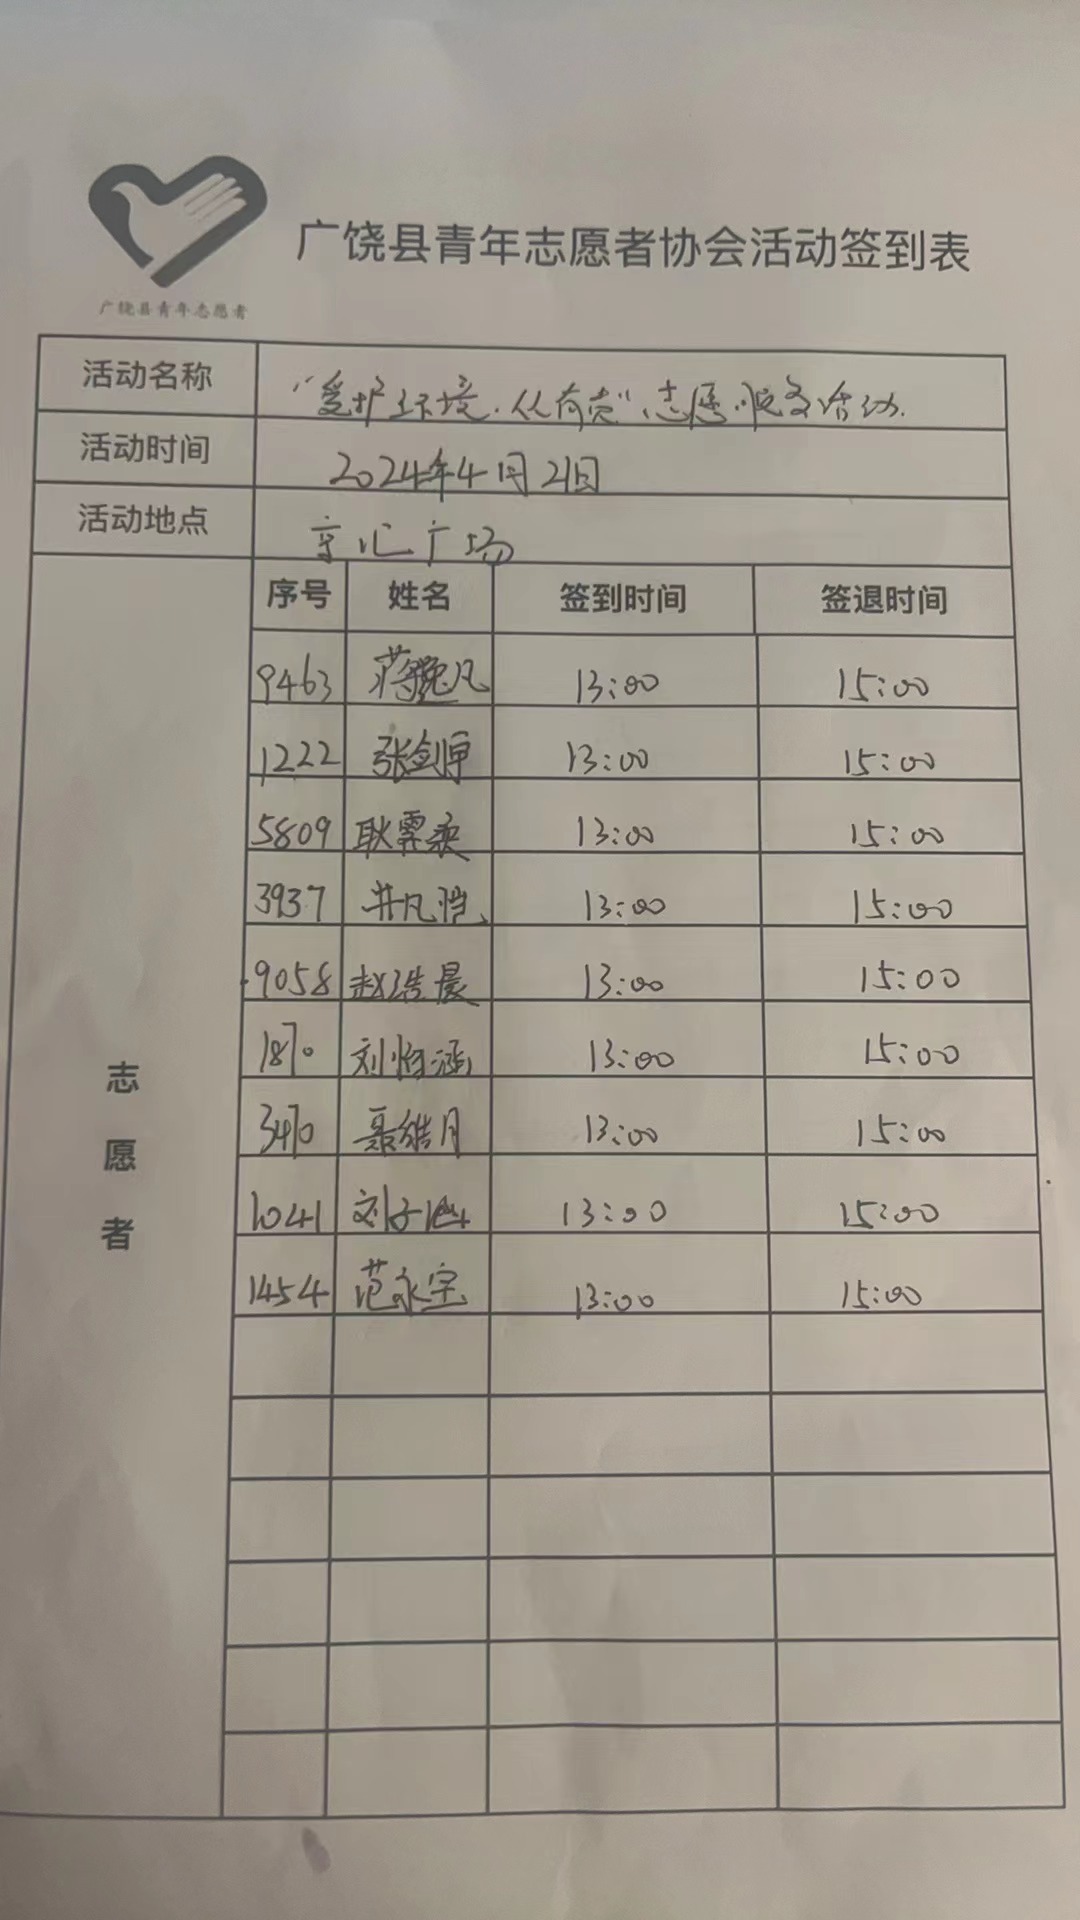 广饶县青年志愿者协会活动签到表
广饶县青年志愿者
活动名称 "爱护环境.从有责"志愿服务活动.
活动时间 2024年4月21日
活动地点 汇广场
序号 姓名 签到时间 签退时间
9463 蒋逸凡 13:00 15:00
1222 张剑 13:00 15:00
5809 耿霁柔 13:00 15:00
3937 井凡 13:00 15:00
9058 赵浩晨 13:00 15:00
1870 刘怡涵 13:00 15:00
3470 聂皓月 13:00 15:00
1041 刘子 13:00 15:00
1454 范永宝 13:00 15:00
志愿者